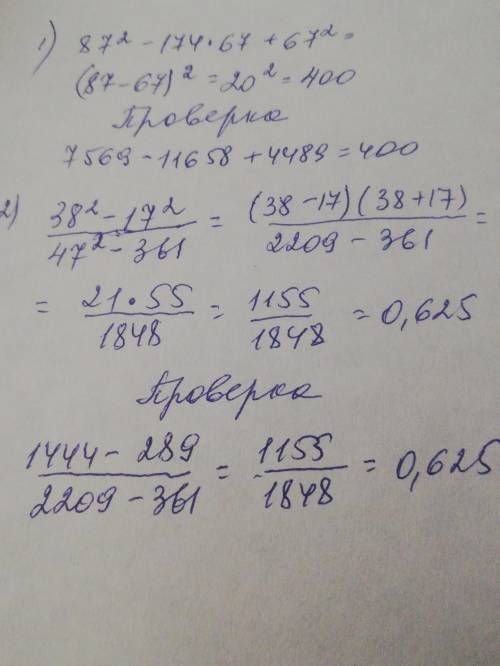 1) 87² - 174 · 67 + 67² =
(87 - 67)² = 20² = 400
Проверка
7569 - 11658 + 4489 = 400
2) (38² - 17²)/(47² - 361) = ((38 - 17)(38 + 17))/(2209 - 361) =
= (21 · 55)/1848 = 1155/1848 = 0,625
Проверка
(1444 - 289)/(2209 - 361) = 1155/1848 = 0,625